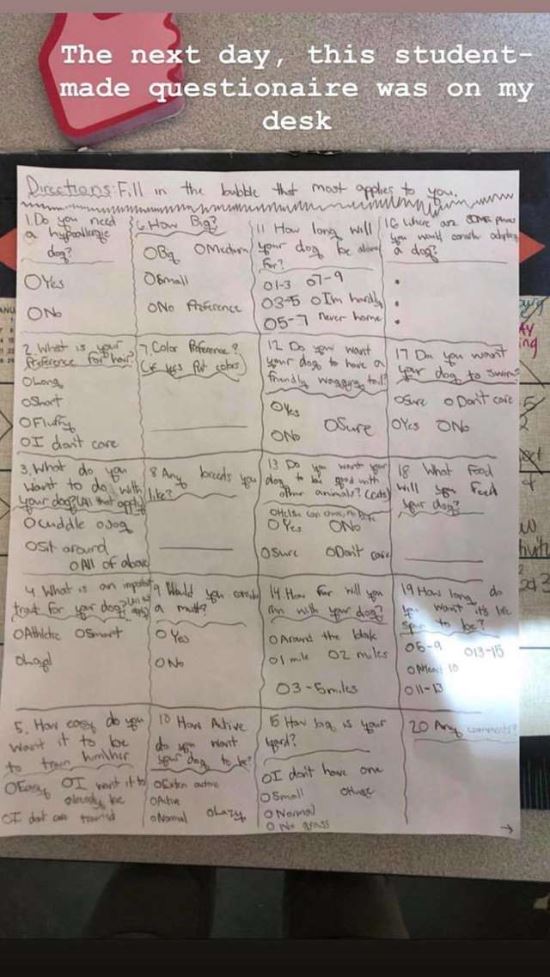 The next day, this student-
made questionaire was on my
desk
Directions: Fill in the bubble that most applies to you.
1. Do you need
a hypoallergic
dog?
OYes
ONo
2. What is your
Preference for hair?
OLong
OShort
OFluffy
OI don't care
3. What do you
want to do with
your dog? (all that apply)
Ocuddle OJog
OSit around
OAll of above
4 What is an important
trait for your dog?
OAthletic OSmart
OLoyal
5. How easy do you
want it to be
to train him/her
OEasy OI want it to
already be
OI dont care trained
6. How Big?
OBig OMedium
OSmall
ONo Preference
7. Color Preference?
(if yes Put color)
8 Any breeds you
like?
9 Would you consider
a mutt?
OYes
ONo
10 How Active
do you want
your dog to be?
OExtra active
OActive
ONormal OLazy
11 How long will
your dog be alone
for?
O1-3 O7-9
O3-5 OIm hardly
O5-7 never home
12. Do you want
your dog to have a
friendly wagging tail?
OYes
ONo OSure
13 Do you want your
dog to be good with
other animals? (cats)
OYes ONo
OSure ODont care
14 How far will you
run with your dog?
OAround the block
O1 mile O2 miles
O3-5 miles
15 How big is your
yard?
OI don't have one
OSmall OHuge
ONormal
ONo grass
16 Where are some places
you would consider adopting
a dog?
17 Do you want
your dog to swim?
OSure ODon't care
OYes ONo
18 What Food
will you feed
your dog?
19 How long do
you want it's life
span to be?
O5-9 O13-15
OAtleast 10
O11-13
20 Any comments?